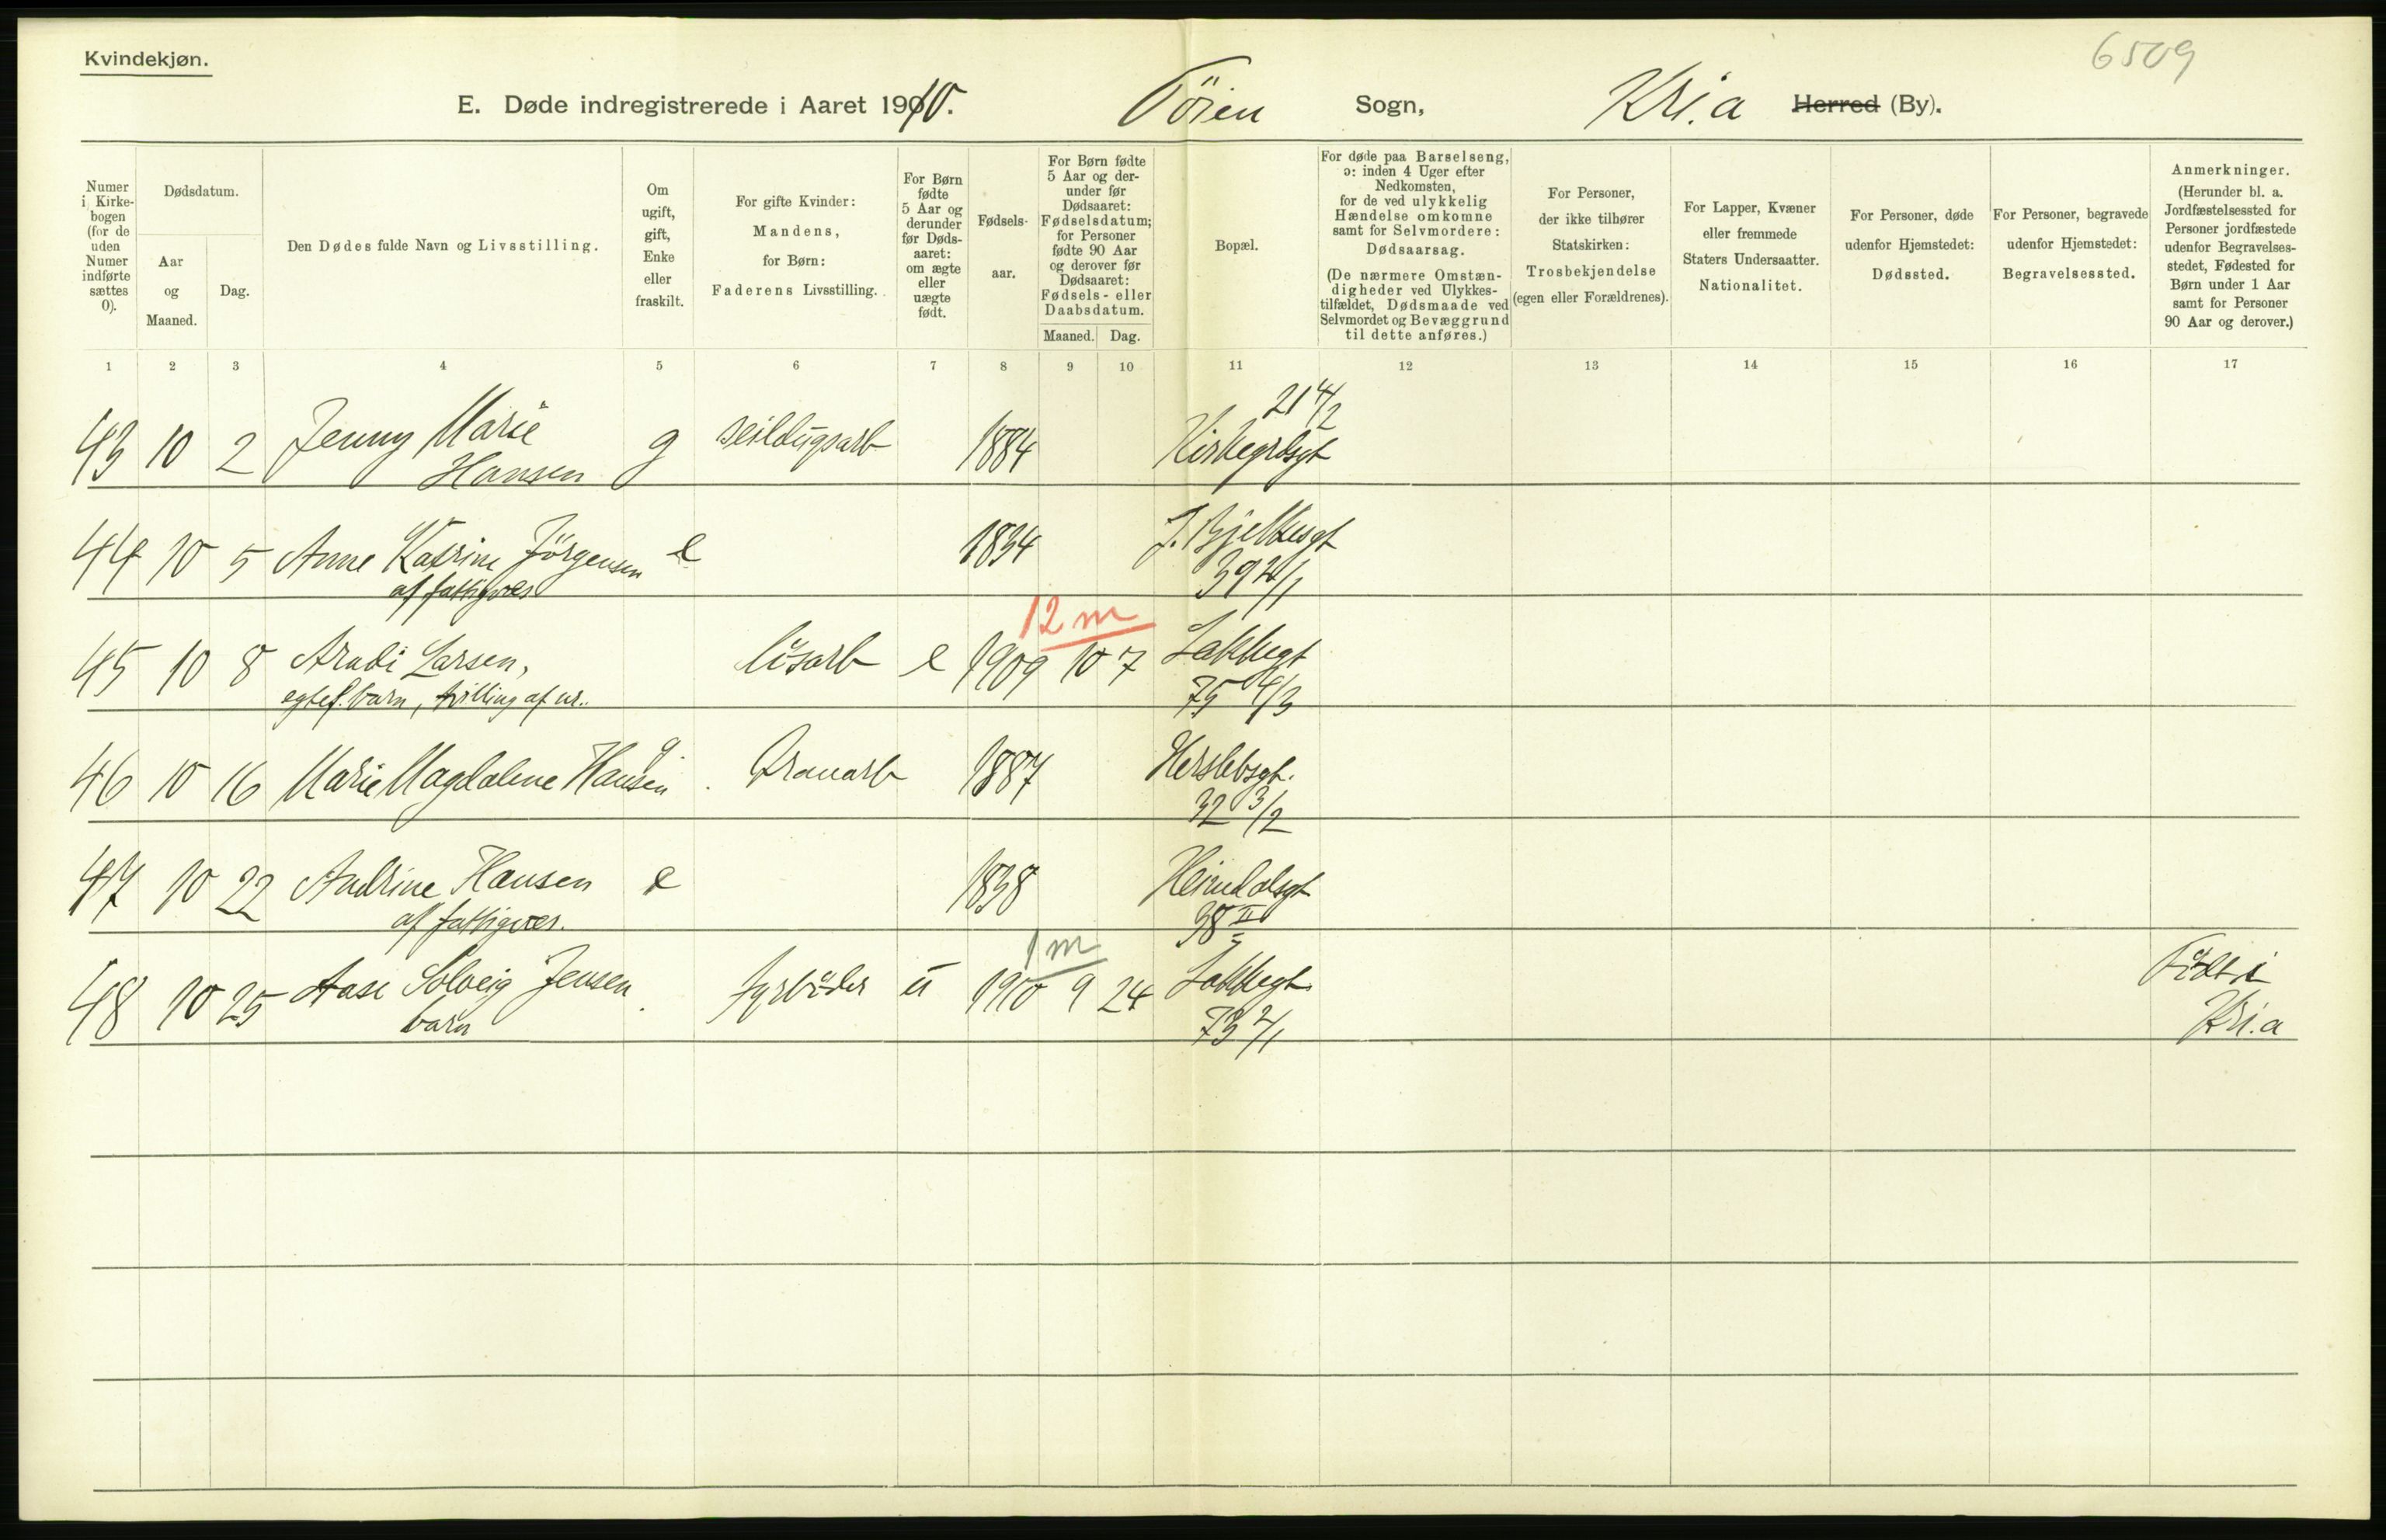 Kvindekjøn.
6509
E. Døde indregistrerede i Aaret 1910. Töien Sogn, Kri.a Herred (By).
Numer i Kirkebogen (for de uden Numer indførte sættes 0).
Dødsdatum.
Aar og Maaned.
Dag.
Den Dødes fulde Navn og Livsstilling.
Om ugift, gift, Enke eller fraskilt.
For gifte Kvinder: Mandens, for Børn: Faderens Livsstilling.
For Børn fødte 5 Aar og derunder før Dødsaaret: om ægte eller uægte født.
Fødselsaar.
For Børn fødte 5 Aar og derunder før Dødsaaret: Fødselsdatum; for Personer fødte 90 Aar og derover før Dødsaaret: Fødsels- eller Daabsdatum.
Maaned. Dag.
Bopæl.
For døde paa Barselseng, ɔ: inden 4 Uger efter Nedkomsten, for de ved ulykkelig Hændelse omkomne samt for Selvmordere: Dødsaarsag. (De nærmere Omstændigheder ved Ulykkestilfældet, Dødsmaade ved Selvmordet og Bevæggrund til dette anføres.)
For Personer, der ikke tilhører Statskirken: Trosbekjendelse (egen eller Forældrenes).
For Lapper, Kvæner eller fremmede Staters Undersaatter. Nationalitet.
For Personer, døde udenfor Hjemstedet: Dødssted.
For Personer, begravede udenfor Hjemstedet: Begravelsessted.
Anmerkninger. (Herunder bl. a. Jordfæstelsessted for Personer jordfæstede udenfor Begravelsesstedet, Fødested for Børn under 1 Aar samt for Personer 90 Aar og derover.)
1 2 3 4 5 6 7 8 9 10 11 12 13 14 15 16 17
43 10 2 Jenny Marie Hansen g seildugsarb 1884 Kirkegrdsgt 21 4/2
44 10 5 Anne Katrine Jörgensen e 1834 J. Bjelkesgt
af fattigves 39 2/1
12 m
45 10 8 Arndi Larsen, lösarb e 1909 10 7 Lakkegt
egtef. barn, tvilling af nr.. 75 4/3
46 10 16 Marie Magdalene Hansen g. Granarb 1887 Herslebsgt.
32 3/2
47 10 22 Andrine Hansen e 1838 Heimdalsgt
af fattigves. 38 II
1 m
48 10 25 Aase Solveig Jensen fyrböder u 1910 9 24 Lakkegt. Födt i
barn 73 2/1 Kri.a